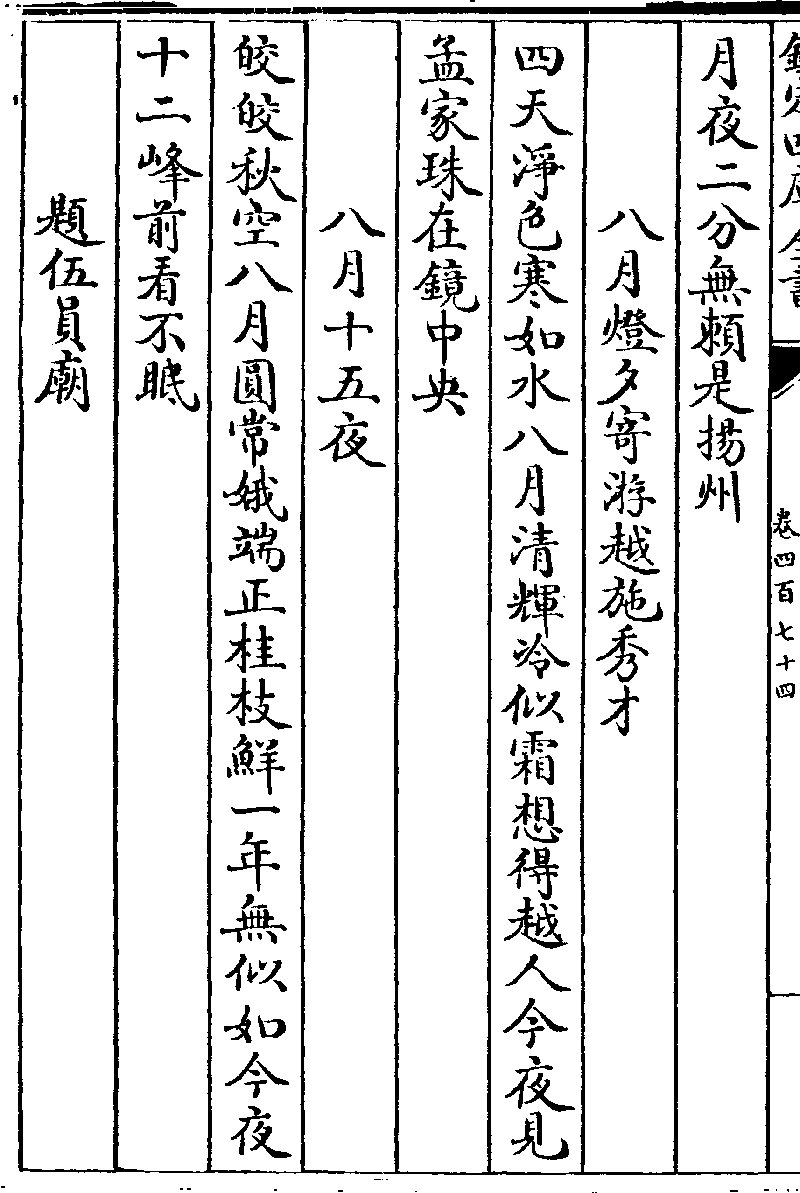 欽定四庫全書
卷四百七十四
月夜二分無頼是揚州
八月燈夕寄游越施秀才
四天淨色寒如水八月清輝冷似霜想得越人今夜見
孟家珠在鏡中央
八月十五夜
皎皎秋空八月圓常娥端正桂枝鮮一年無似如今夜
十二峰前看不眠
題伍員廟